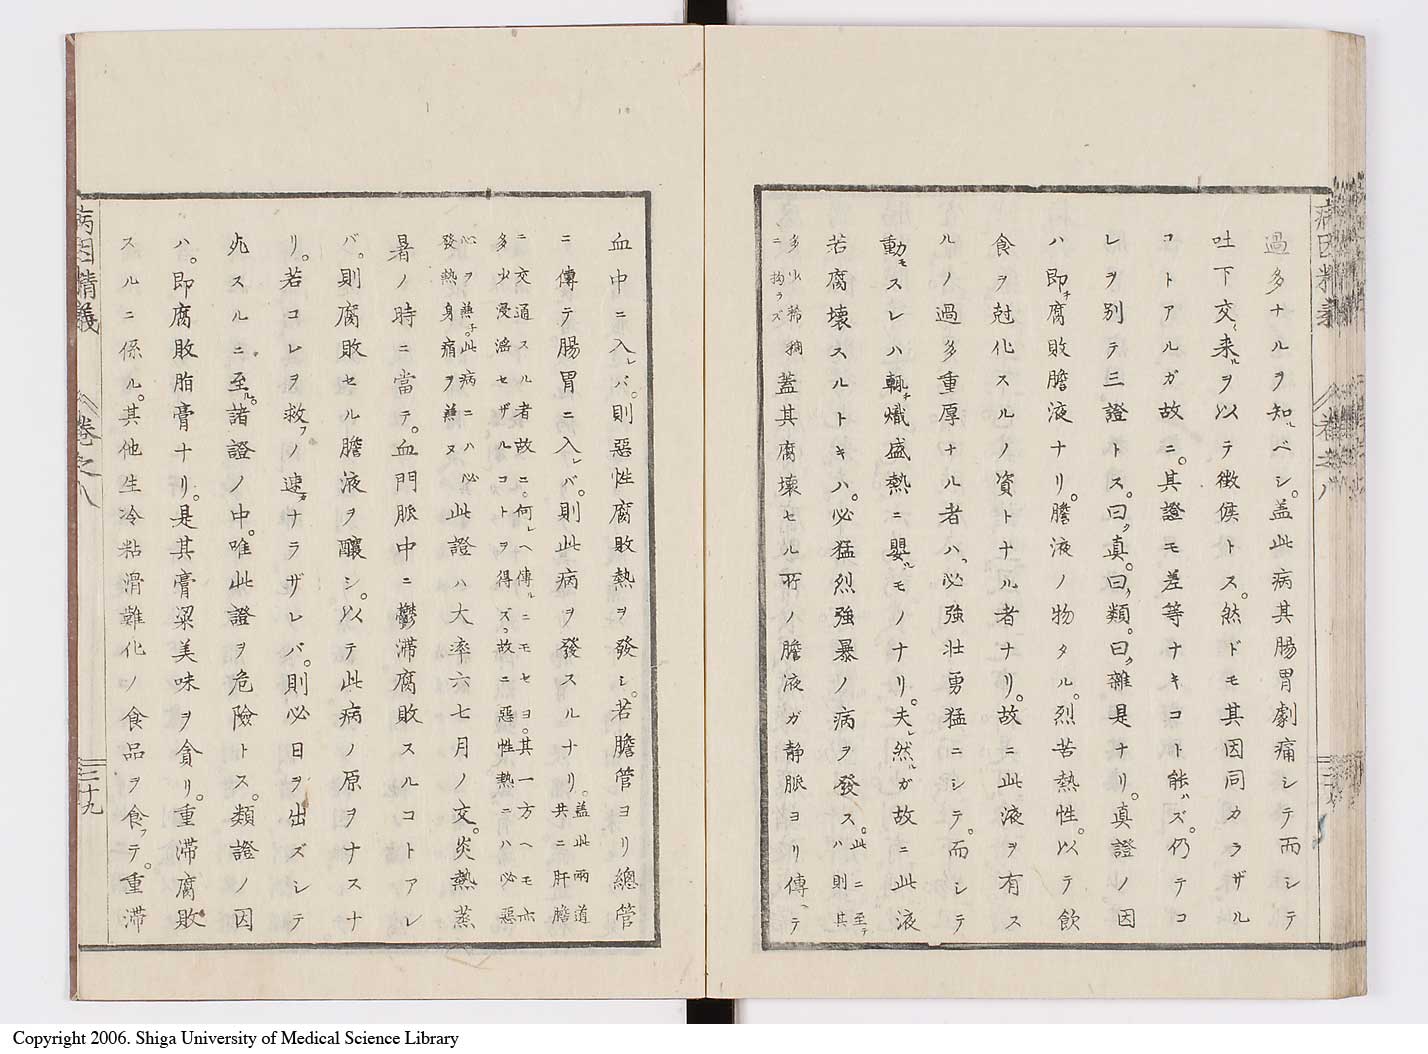 過多ナルヲ知ルベシ。盖此病其腸胃劇痛シテ而シテ
吐下交、来ルヲ以テ徴候トス。然ドモ其因同カラザル
コトアルガ故ニ。其證モ差等ナキコト能ハズ。仍テコ
レヲ別テ三證トス。曰ク真。曰ク類。曰ク雜是ナリ。真證ノ因
ハ即チ腐敗膽液ナリ。膽液ノ物タル。烈苦熱性。以テ飲
食ヲ尅化スルノ資トナル者ナリ。故ニ此液ヲ有ス
ルノ過多重厚ナル者ハ、必強壮勇猛ニシテ。而シテ
動モスレハ輒チ熾盛熱ニ嬰ルモノナリ。夫レ然ルガ故ニ此液
苦腐壊スルトキハ。必猛烈強暴ノ病ヲ發ス。此ニ至テハ則其
多少稀稠ニ拘ラズ 蓋其腐壊セル所ノ膽液ガ静脈ヨリ傳ヘテ
血中ニ入レバ。則惡性腐敗熱ヲ發シ。若膽管ヨリ總管
ニ傳テ腸胃ニ入レバ。則此病ヲ發スルナリ。蓋此兩道共ニ肝膽
ニ交通スル者故ニ。何レヘ傳ルニモセヨ。其一方ヘモ亦多少浸滛セザルコトヲ得ズ。故ニ惡性熱ニハ必惡
心ヲ兼子。此病ニハ必發熱身痛ヲ兼ヌ 此證ハ大率六七月ノ交。炎熱蒸
暑ノ時ニ當テ。血門脈中ニ鬱滞腐敗スルコトアレ
バ。則腐敗セル膽液ヲ釀シ。以テ此病ノ原ヲナスナ
リ。若コレヲ救フノ速カナラザレバ。則必日ヲ出ズシテ
死スルニ至ル。諸證ノ中。唯此證ヲ危險トス。類證ノ因
ハ。即腐敗脂膏ナリ。是其膏粱美味ヲ貪リ。重滞腐敗
スルニ係ル。其他生冷粘滑難化ノ食品ヲ食フテ。重滞
病因精義
卷之八
三十九
Copyright 2006. Shiga University of Medical Science Library